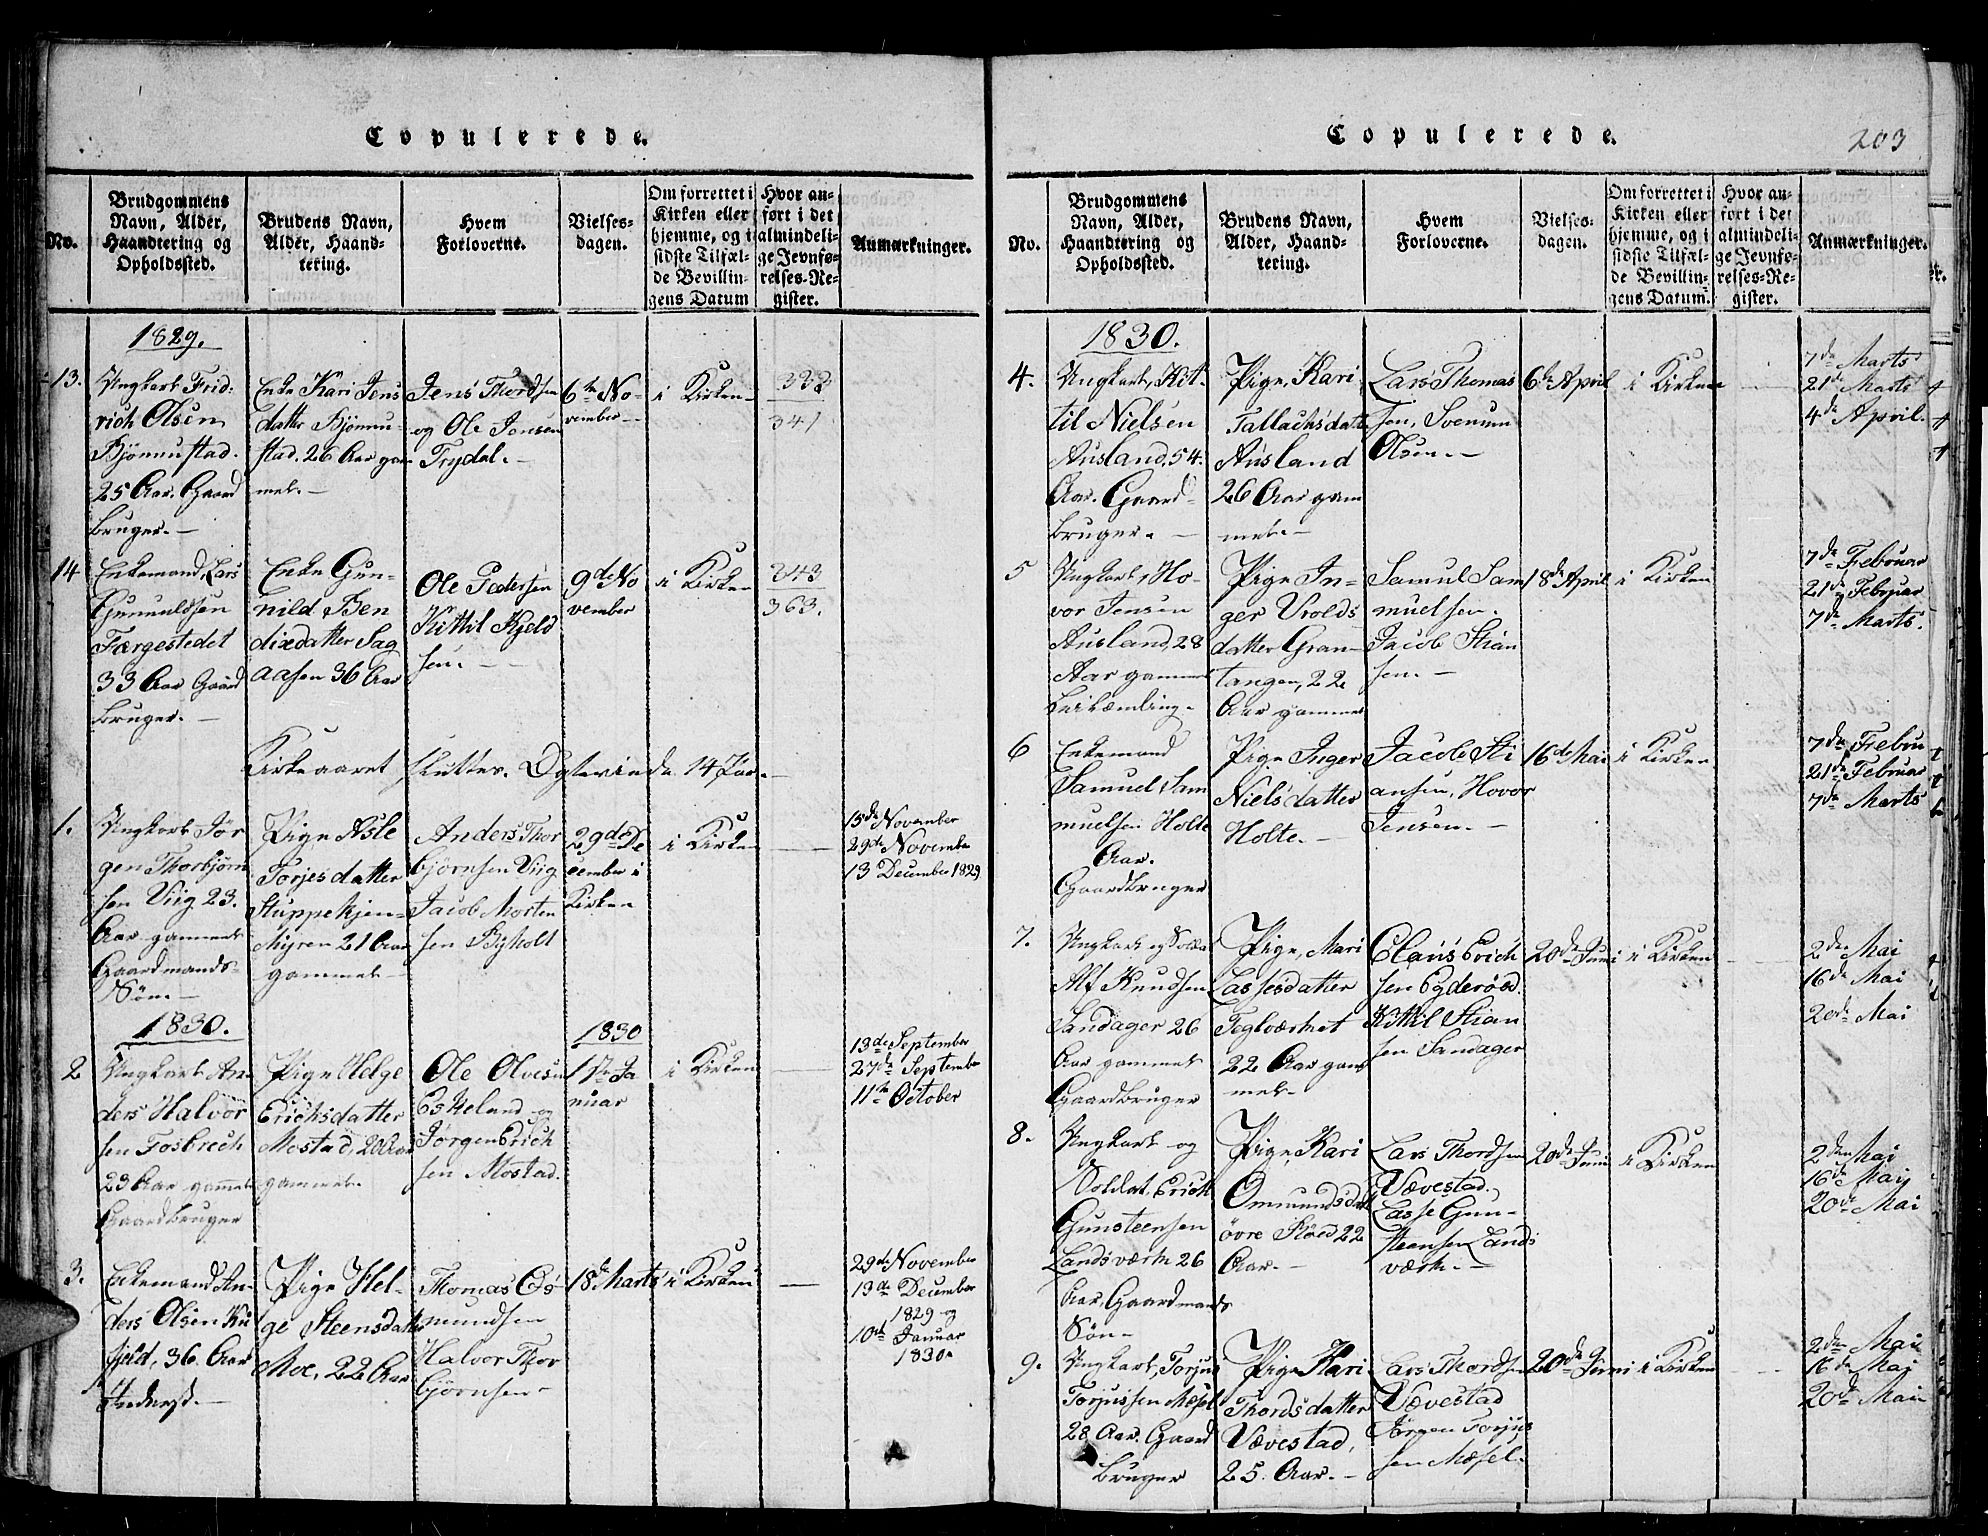 Copulerede.
No.
Brudgommens
Navn, Alder,
Haandtering og
Opholdssted.
Brudens Navn,
Alder, Haand-
tering.
Hvem
Forloverne.
Vielses-
dagen.
Om forrettet i
Kirken eller
hjemme, og i
sidste Tilfæl-
de Bevillin-
gens Datum
Hvor an-
ført i det
almindeli-
ge Jevnfø-
relses-Re-
gister.
Anmærkninger.
1829.
13.
Ungkarl Frid-
rich Olsen
Bjönnustad.
25 Aar. Gaard
bruger.-
Enke Kari Jens
datter Bjönnu-
stad. 26 Aar gam
mel.-
Jens Thordsen
og Ole Jensen
Trydal.-
6te No-
vember-
i Kirken
341
14
Enkemand, Lars
Gunnuldsen
Færgestedet
33 Aar Gaard
bruger.-
Enke Gun-
nild Ben
dixdatter Sag
aasen 36 Aar
Ole Pedersen
Kittil Kjeld
sen.-
9de No
vember
i Kirken
343
363.
Kirkeaaret slutter.
14 Par.
1.
Ungkarl Jör
gen Thorbjörn
sen Viig 23.
Aar gammel
Gaardmands-
Sön.-
Pige Asle
Torjesdatter
Stuppekjen-
Myren 21 Aar
gammel-
Anders Thor
bjørnsen Viig
Jacob Morten
sen Byholt
29de De
cember i
Kirken
i Kirken
15de November
29de November
13 December 1829
1830.
1830
2
Ungkarl An-
ders Halvor
sen Fosbrech
23 Aar gammel
Gaardbruger
Pige Helge
Erichsdatter
Mostad, 20 Aar
gammel.
Ole Olvesen
Eskeland og
Jørgen Erich
sen Mostad.
17de Ja
nuar
i Kirken
13de September
27de September
11te October
3.
Enkemand An-
ders Olsen
fjeld, 36 Aar
Inderst.-
Pige Hel-
ge Steensdatter
Moe, 22 Aar
Thomas
mundsen
Halvor Thor
bjørnsen-
18de Marts
i Kirken
29de November
13de December
1829 og
10de Januar
1830.
Copulerede.
203
No.
Brudgommens
Navn, Alder,
Haandtering og
Opholdssted.
Brudens Navn,
Alder, Haand-
tering.
Hvem
Forloverne.
Vielses-
dagen.
Om forrettet i
Kirken eller
hjemme, og i
sidste Tilfæl-
de Bevillin-
gens Datum.
Hvor an-
ført i det
almindeli-
ge Jevnfø-
relses-Re-
gister.
Anmærkninger.
1830.
4.
Ungkarl, Kit-
til Nielsen
Ausland, 54.
Aar. Gaard-
bruger.-
Pige, Kari
Tallachsdatt
Ausland
26 Aar gam
mel.-
Lars Thomas
sen, Svenum
Olsen.-
6te April
i Kirken
7de Marts
21de Marts
4de April.
5
Ungkarl, Ho-
vor Jensen
Ausland, 28
Aar gammel
Pige In-
ger Vrolds
datter Gran-
tangen, 22
Aar gammel
Samul Sam
muelsen.
Jacob Stian
sen.-
18de April
i Kirken
7de Februar
21de Februar
7de Marts.
6
Enkemand
Samuel Sam
muelsen Holte
Aar.
Gaardbruger
Pige Inger
Nielsdatter
Holte.-
Jacob Sti
ansen, Hovor
Jensen.-
16de Mai
i Kirken
7de Frebru
21de Februar
7de Marts
7.
Ungkarl og Soldat
Alf Knudsen
Sandager 26
Aar gammel
Gaardbruger
Pige, Mari
Lassesdatter
Teglværket
22 Aar gam
mel.-
Claus Erich
sen Eyderöed.
Kittil Stian
sen Sandager
20de Juni
i Kirken
2de Mai
16de Mai
20de Mai
8.
Ungkarl og
Soldat, Erich
Gunsteensen
Landsværk 26
Aar, Gaardmands
Sön-
Pige, Kari
Ommundsdat
övre Röed 22
Aar.-
Lars Thordsen
Vævestad.
Lasse Gun-
steensen Lands
værk.-
20de Juni
i Kirken
2den Mai
16de Mai
20de Mai
9.
Ungkarl, Torjus
Torjussen Mæsel
28 Aar. Gaard
bruger
Pige Kari
Thordsdatter
Vævestad,
25. Aar.-
Lars Thordsen
Vævestad
Jörgen Torjus
sen Mæsel.
20de Juni
i Kirken
2de Mai
16de Mai
20de Mai